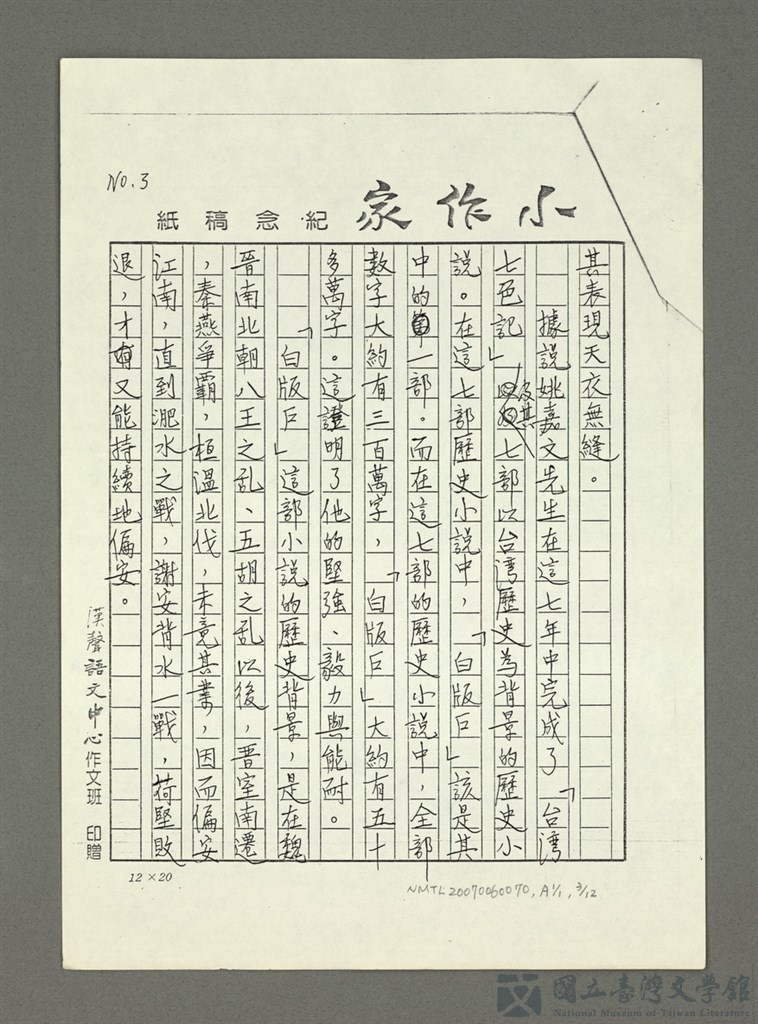 No.3
小作家
紀念稿紙
其表現天衣無縫。
據說姚嘉文先生在這七年中完成了「台灣
七色記」及其七部以台灣歷史為背景的歷史小
說。在這七部歷史小說中，「白版丘」該是其
中的一部。而在這七部的歷史小說中，全部
數字大約有三百萬字，「白版丘」大約有五十
多萬字。這證明了他的堅強、毅力與能耐。
「白版丘」這部小說的歷史背景，是在魏
晉南北朝八王之乱、五胡之乱以後，晋室南遷
，秦燕爭霸，桓溫北伐，未竟其業，因而偏安
江南，直到淝水之戰，謝安背水一戰，苻堅敗
退，才又能持續地偏安。
漢聲語文中心作文班 印贈
12×20
NMTL20070060070, A1/1, 3/12
國立臺灣文學館
National Museum of Taiwan Literature